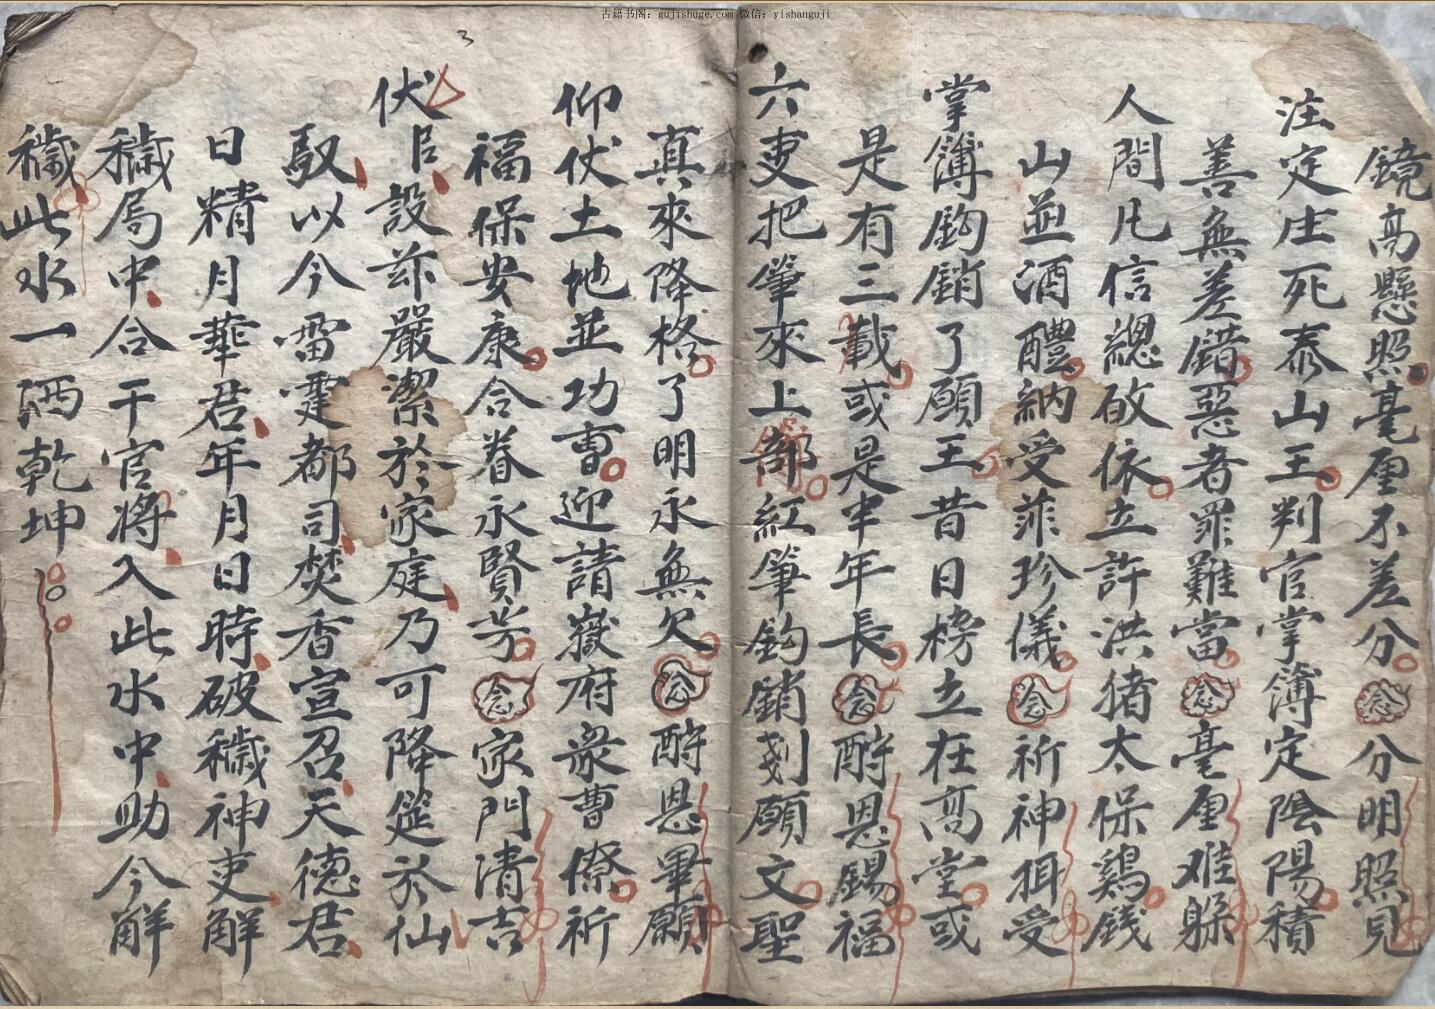 古籍书阁：gujishuge.com 微信：yishanguji
鏡高懸照毫厘不差分念分明照見
注定庄死泰山王判官掌簿定陰陽積
善無差錯惡者罪難當念毫厘难躲
人間凡信總啟依立許洪猪太保鷄錢
山並酒醴納受菲珍儀念祈神押受
掌簿鈎銷了願王昔日榜立在高堂或
是有三載或是半年長念酧恩錫福
六吏把筆來上部紅筆鈎銷剗願文聖
真來降格了明永無欠念酧恩畢願
仰伏土地並功曹迎請嶽府衆曹僚祈
福保安康合眷永賢芳念家門清吉
伏臣設茲嚴潔於家庭乃可降筵於仙
馭以今雷霆都司焚香宣召天德君
日精月華君年月日時破穢神吏解
穢局中合干官将入此水中助今解
穢此水一洒乾坤